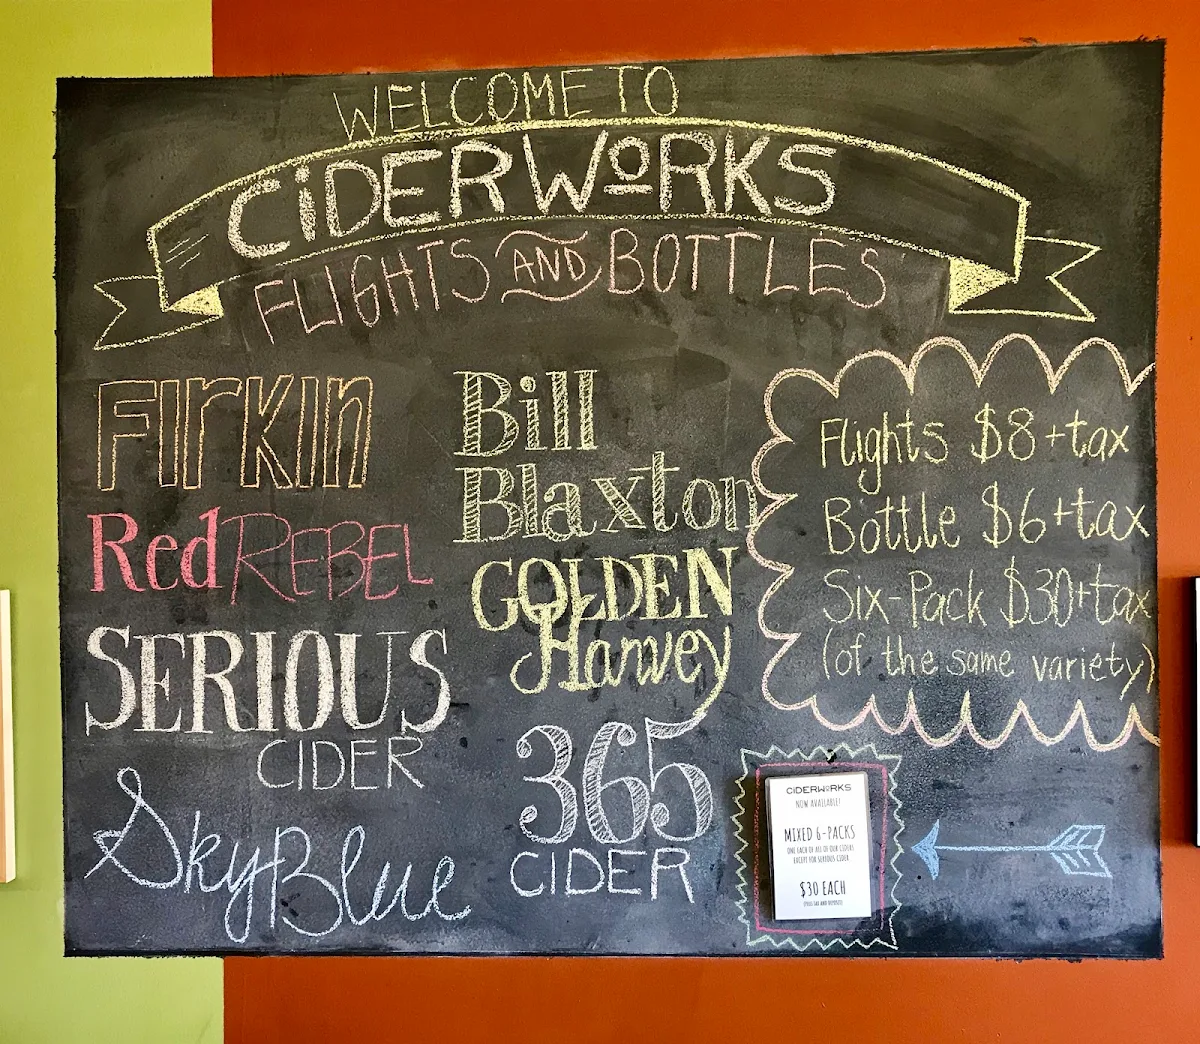 WELCOME TO
CiDERWoRKS
FLIGHTS AND BOTTLES
FIrKIn
Red REBEL
SERIOUS
CIDER
SkyBlue
Bill
Blaxton
GOLDEN
Harvey
365
CIDER
Flights $8+tax
Bottle $6+tax
Six-Pack $30+tax
(of the same variety)
CiDERWoRKS
NOW AVAILABLE!
MIXED 6-PACKS
ONE EACH OF ALL OF OUR CIDERS
EXCEPT FOR SERIOUS CIDER
$30 EACH
(PLUS TAX AND DEPOSIT)